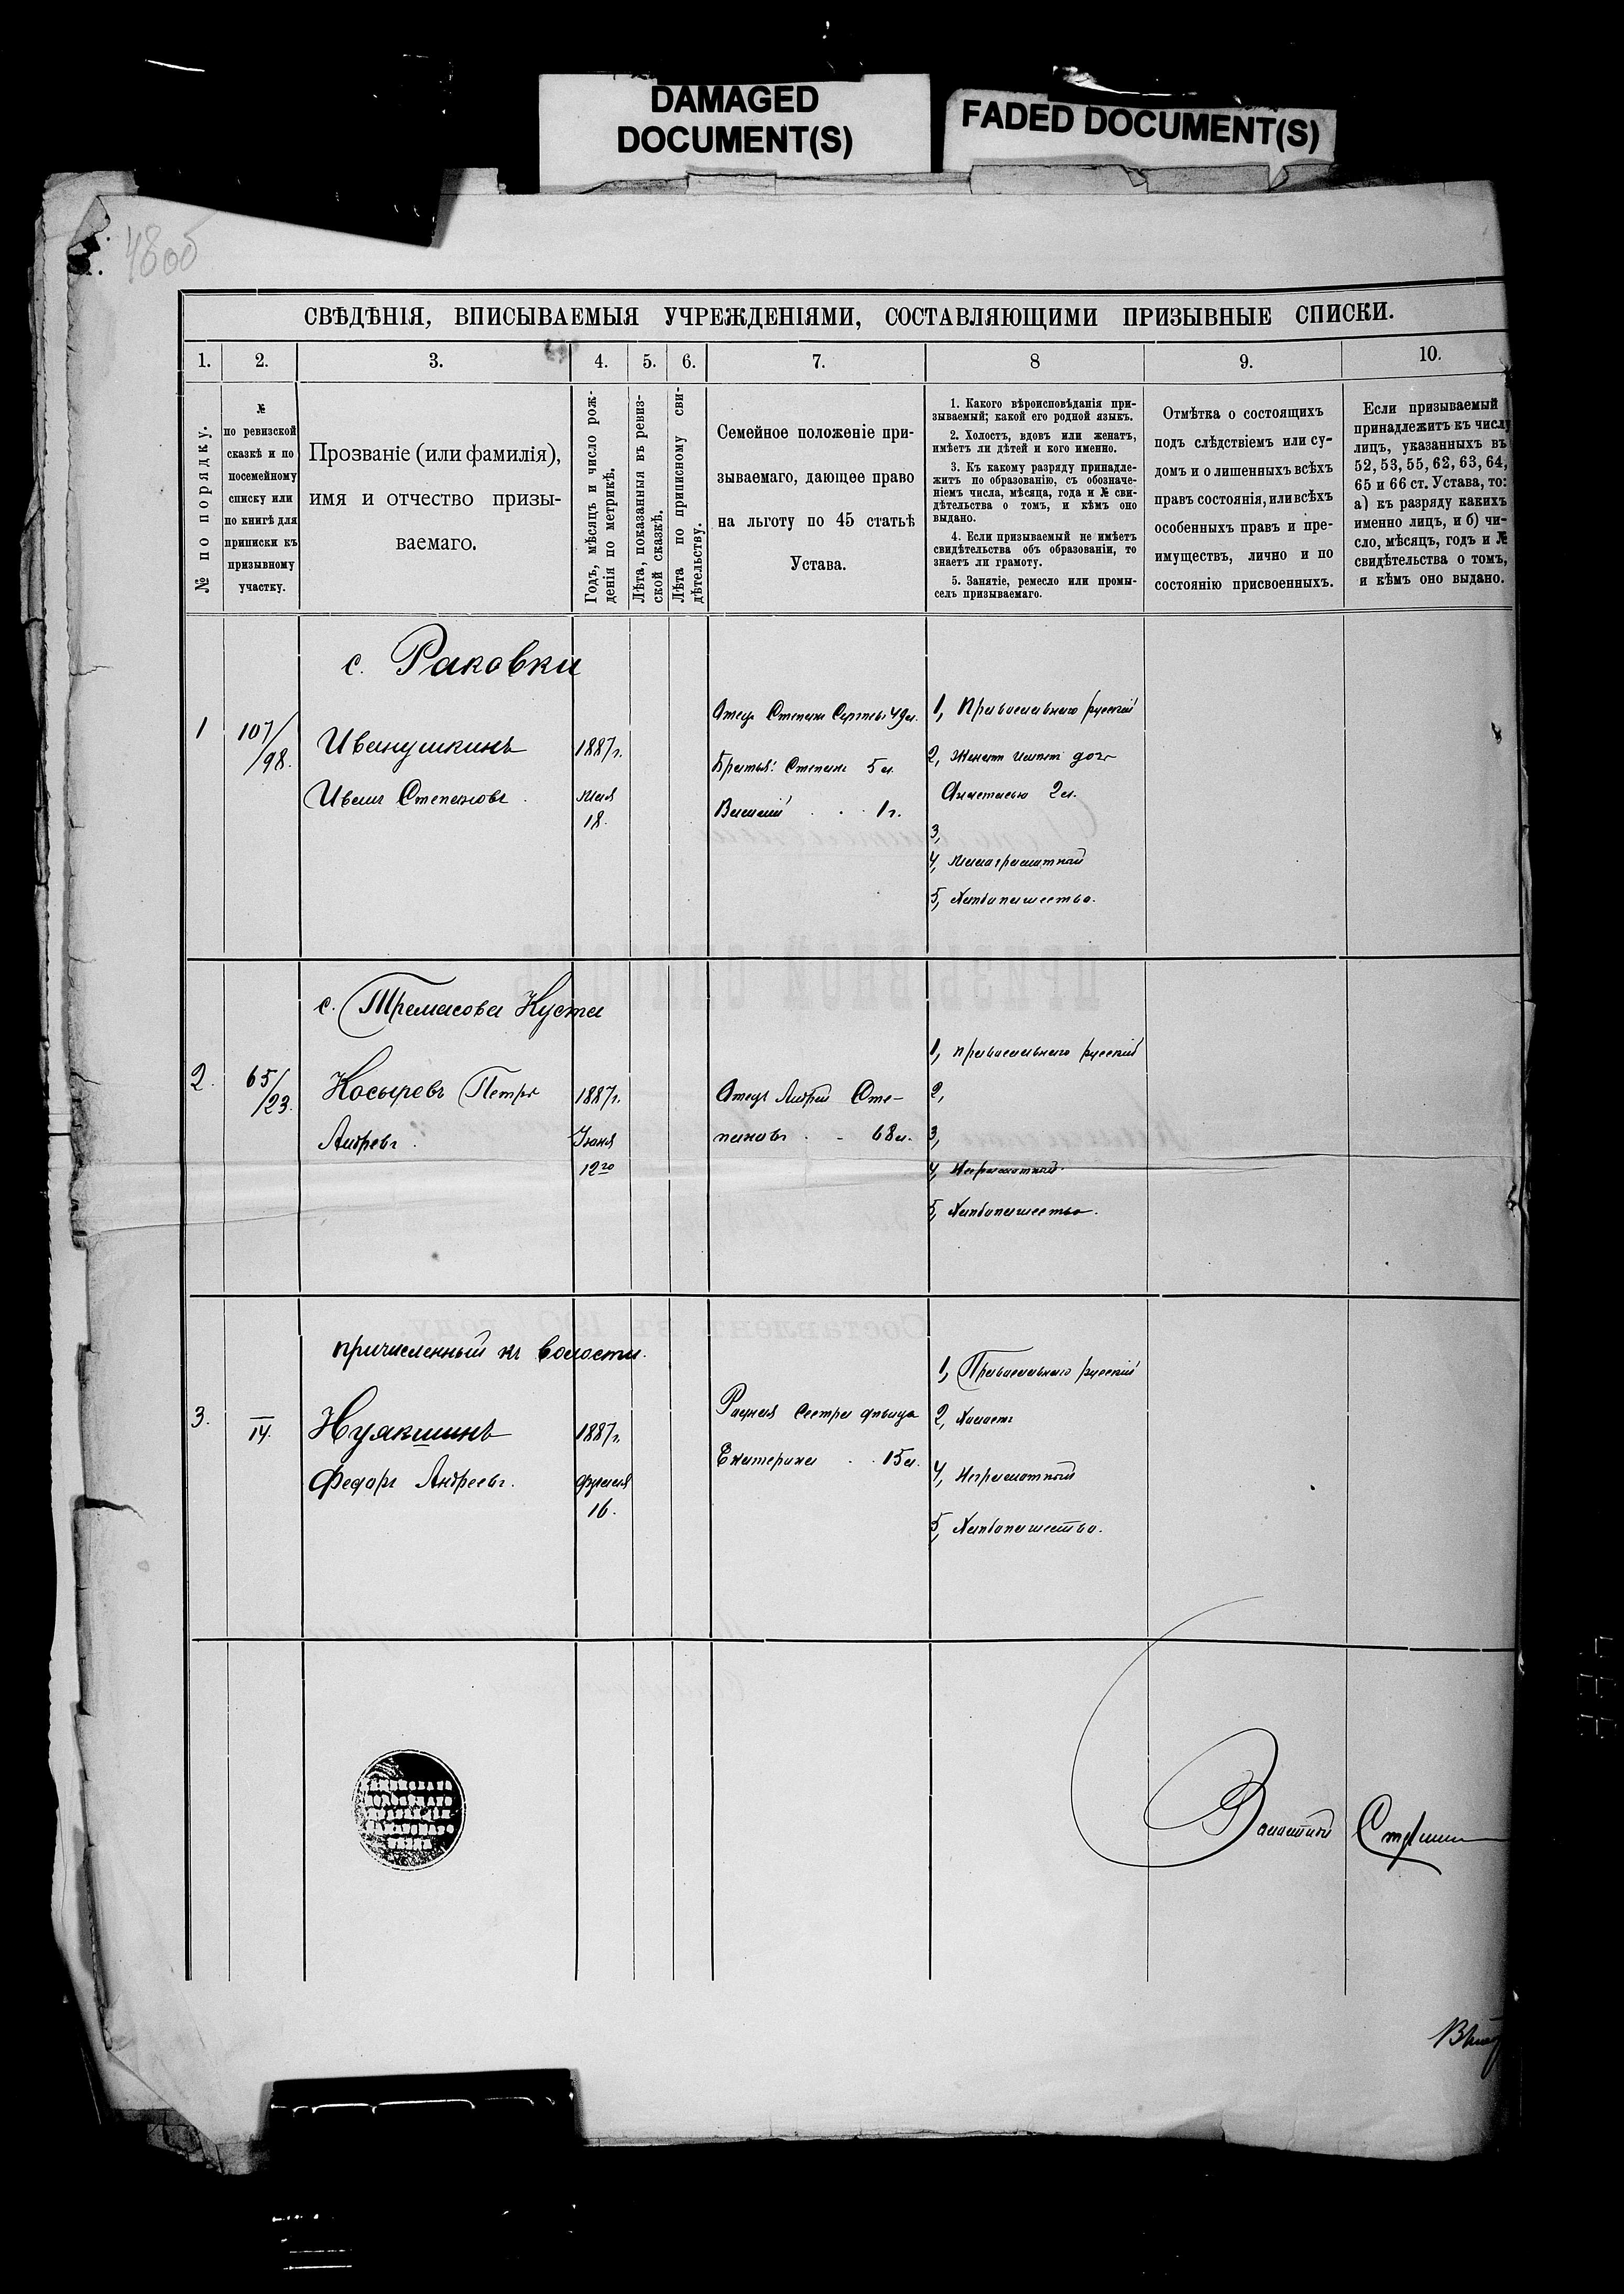 DAMAGED
DOCUMENT(S)
FADED DOCUMENT(S)
48об
СВѢДѢНІЯ, ВПИСЫВАЕМЫЯ УЧРЕЖДЕНІЯМИ, СОСТАВЛЯЮЩИМИ ПРИЗЫВНЫЕ СПИСКИ.
1. 2. 3. 4. 5. 6. 7. 8 9. 10.
№ по порядку.
№
по ревизской
сказкѣ и по
посемейному
списку или
по книгѣ для
приписки къ
призывному
участку.
Прозваніе (или фамилія),
имя и отчество призы-
ваемаго.
Годъ, мѣсяцъ и число рож-
денія по метрикѣ.
Лѣта, показанныя въ ревиз-
ской сказкѣ.
Лѣта по приписному сви-
дѣтельству.
Семейное положеніе при-
зываемаго, дающее право
на льготу по 45 статьѣ
Устава.
1. Какого вѣроисповѣданія при-
зываемый; какой его родной языкъ.
2. Холостъ, вдовъ или женатъ,
имѣетъ ли дѣтей и кого именно.
3. Къ какому разряду принадле-
житъ по образованію, съ обозначе-
ніемъ числа, мѣсяца, года и № сви-
дѣтельства о томъ, и кѣмъ оно
выдано.
4. Если призываемый не имѣетъ
свидѣтельства объ образованіи, то
знаетъ ли грамоту.
5. Занятіе, ремесло или промы-
селъ призываемаго.
Отмѣтка о состоящихъ
подъ слѣдствіемъ или су-
домъ и о лишенныхъ всѣхъ
правъ состоянія, или всѣхъ
особенныхъ правъ и пре-
имуществъ, лично и по
состоянію присвоенныхъ.
Если призываемый
принадлежитъ къ числу
лицъ, указанныхъ въ
52, 53, 55, 62, 63, 64,
65 и 66 ст. Устава, то:
а) къ разряду какихъ
именно лицъ, и б) чи-
сло, мѣсяцъ, годъ и №
свидѣтельства о томъ,
и кѣмъ оно выдано.
с. Раковки
1
107/98.
Иванушкинъ
Иванъ Степановъ.
1887г.
мая
18.
Отецъ Степанъ Сергѣевъ 49л.
Братья: Степанъ 5 л.
Василій . . 1 г.
1, Православнаго русскій
2, Женатъ имѣетъ дочь
Анастасью 2 л.
3,
4, малограмотный
5, Хлѣбопашество.
с. Тремасова Куста
2.
65/23.
Косыревъ Петръ
Андреевъ.
1887г.
Іюня
12го
Отецъ Андрей Сте-
пановъ . . 68 л.
1, православнаго русскій
2,
3,
4, Неграмотный.
5, Хлѣбопашество.
причисленный къ волости.
3.
IV.
Нуякшинъ
Федоръ Андреевъ.
1887г.
февраля
16.
Родная сестра дѣвица
Екатерина . . 15 л.
1, Православнаго русскій
2, Холостъ
4, Неграмотный
5, Хлѣбопашество.
Волостной Старшина